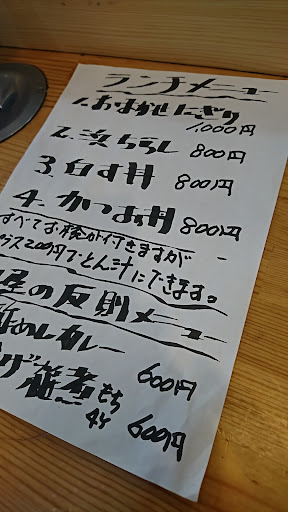 ランチメニュー
1.おまかせにぎり
1,000円
2.浜ちらし 800円
3.白す丼 800円
4.かつお丼 800円
すべてお椀が付きますが
プラス200円でとん汁にできます。
の反則メニュー
めしカレー 600円
もち
4ヶ 600円